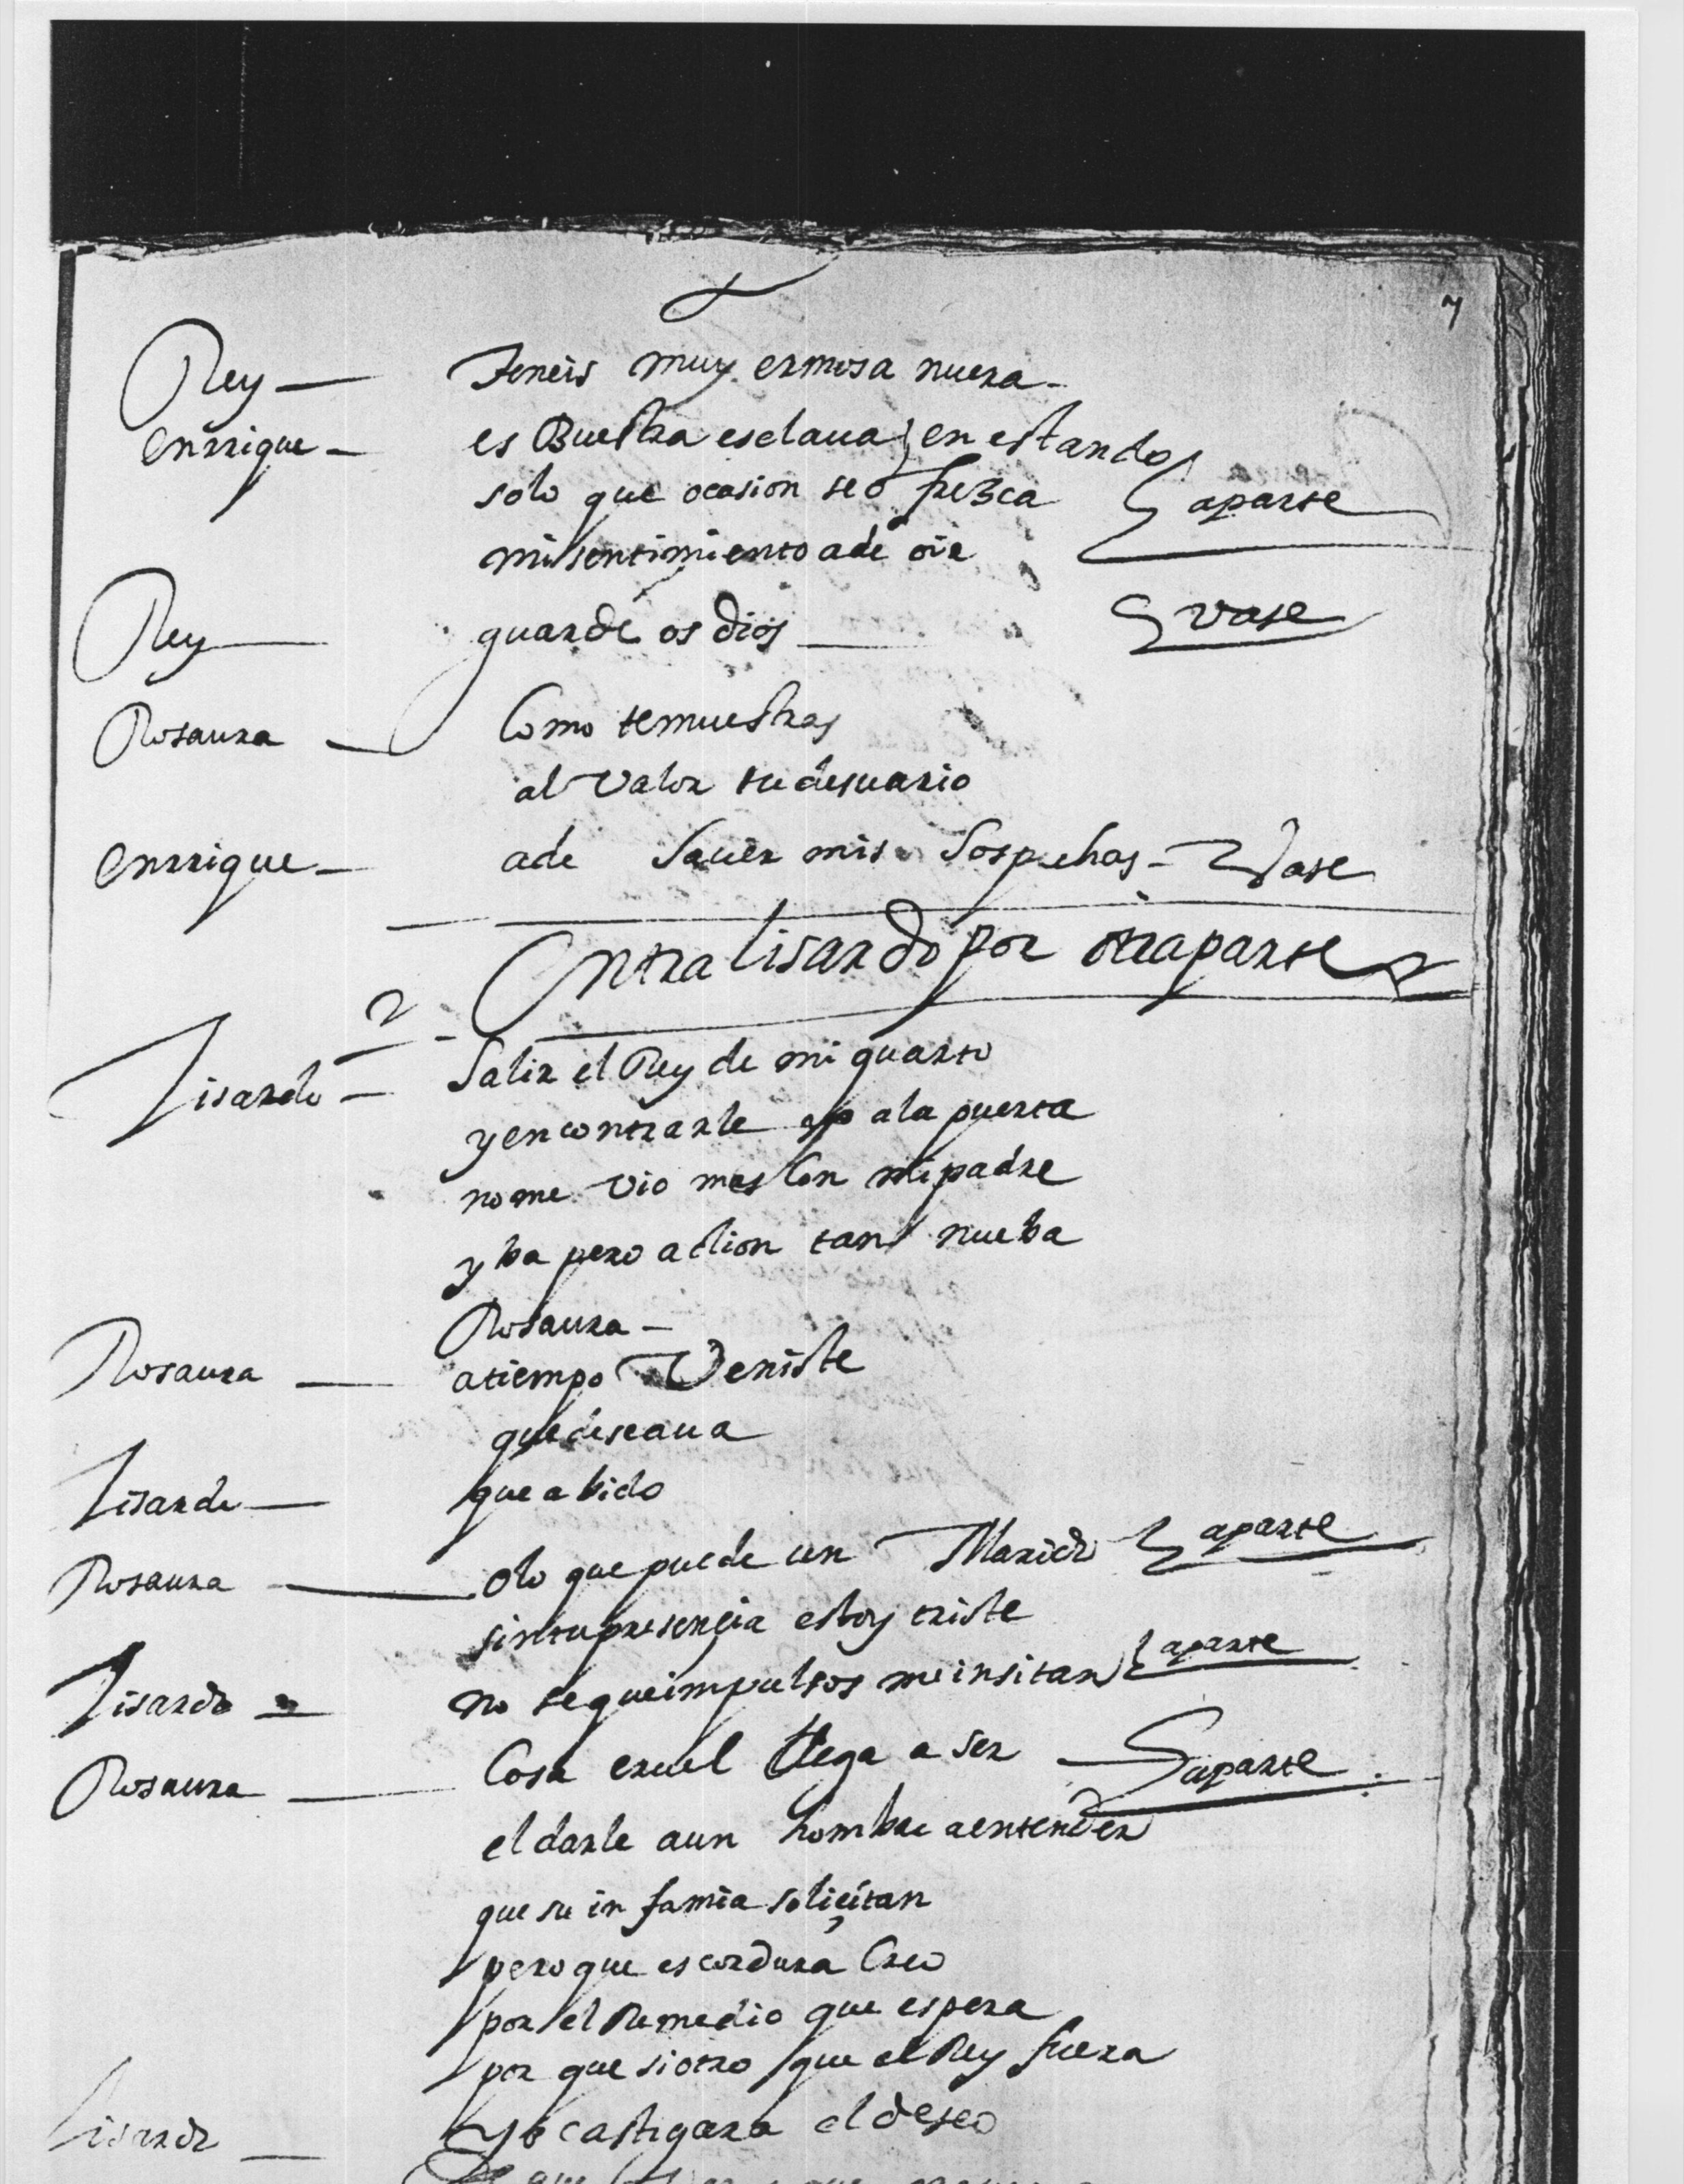 7
Rey — Teneis muy ermosa nuera —
enrrique — es Buestra esclaua } en estando
solo que ocasion se ofrezca { aparte
mi sentimiento a de oir
Rey — guarde os dios — { vase
Rosaura — Como te muestras
al Valor tu desuario
enrrique — a de sauer mis sospechas — Vase
Entra lisardo por otra parte
Lisardo — Salir el Rey de mi quarto
y encontrarle yo a la puerta
no me vio mas Con mi padre
yba pero action tan nueba
Rosaura —
Rosaura — a tiempo Veniste
que deseaua
Lisardo — que abido
Rosaura — o lo que puede un Marido { aparte
sin tu presençia estoy triste
Lisardo — no se que impulsos me insitan { aparte
Rosaura — Cosa cruel llega a ser — { aparte
el darle a un hombre a entender
que su infamia soliçitan
pero que es cordura Creo
por el Remedio que espera
por que si otro que el Rey fuera
yo castigara el deseo
Lisardo —